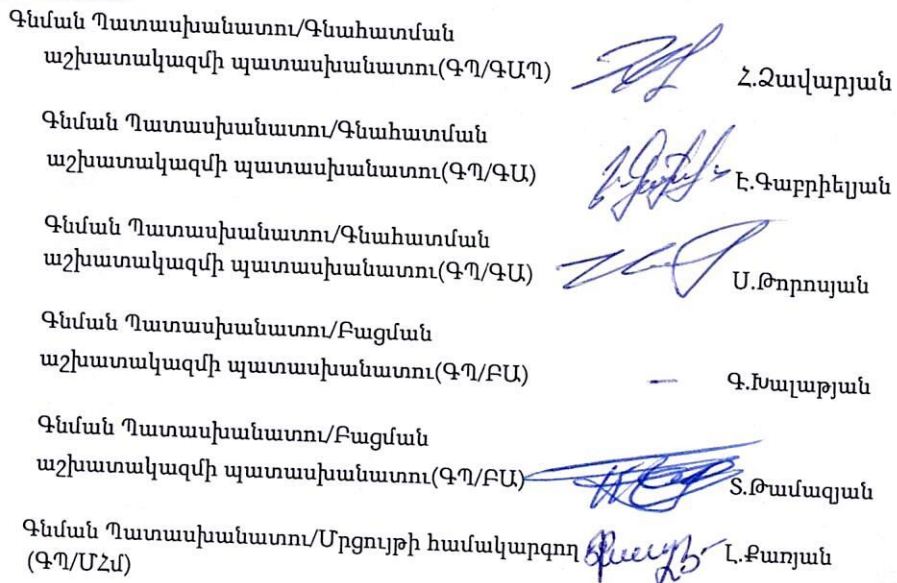 Գնման Պատասխանատու/Գնահատման
աշխատակազմի պատասխանատու(ԳՊ/ԳԱՊ) Զ.Զավարյան
Գնման Պատասխանատու/Գնահատման
աշխատակազմի պատասխանատու(ԳՊ/ԳԱ) Է.Գաբրիելյան
Գնման Պատասխանատու/Գնահատման
աշխատակազմի պատասխանատու(ԳՊ/ԳԱ) Ս.Թորոսյան
Գնման Պատասխանատու/Բացման
աշխատակազմի պատասխանատու(ԳՊ/ԲԱ) – Գ.Խալաթյան
Գնման Պատասխանատու/Բացման
աշխատակազմի պատասխանատու(ԳՊ/ԲԱ) Տ.Թամազյան
Գնման Պատասխանատու/Մրցույթի համակարգող Լ.Քառյան
(ԳՊ/ՄՀմ)